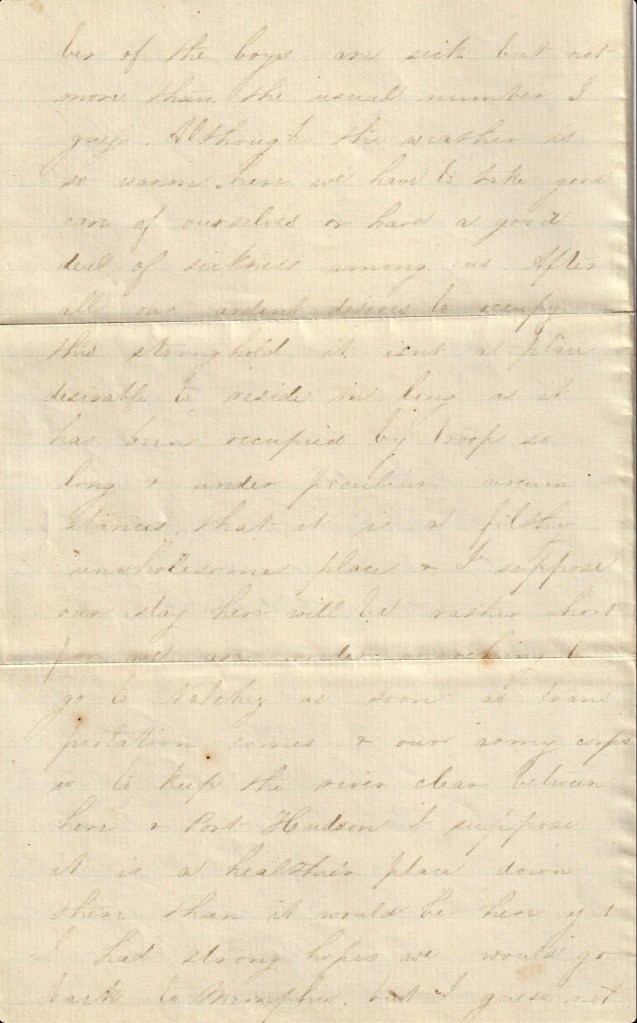 ber of the boys are sick but not
more than the usual number I
guess. Although the weather is
so warm here we have to take good
care of ourselves or have a good
deal of sickness among us After
all our ardent desires to occupy
this stronghold it isnt a place
desirable to reside in long as it
has been occupied by troops so
long & under peculiar circum
stances that it is a filthy
unwholesome place & I suppose
our stay here will be rather short
for we are under marching to
go to Natchez as soon as trans
portation comes & our army corps
is to keep the river clear between
here & Port Hudson I suppose
it is a healthier place down
there than it would be here yet
I had strong hopes we would go
back to Memphis. but I guess not